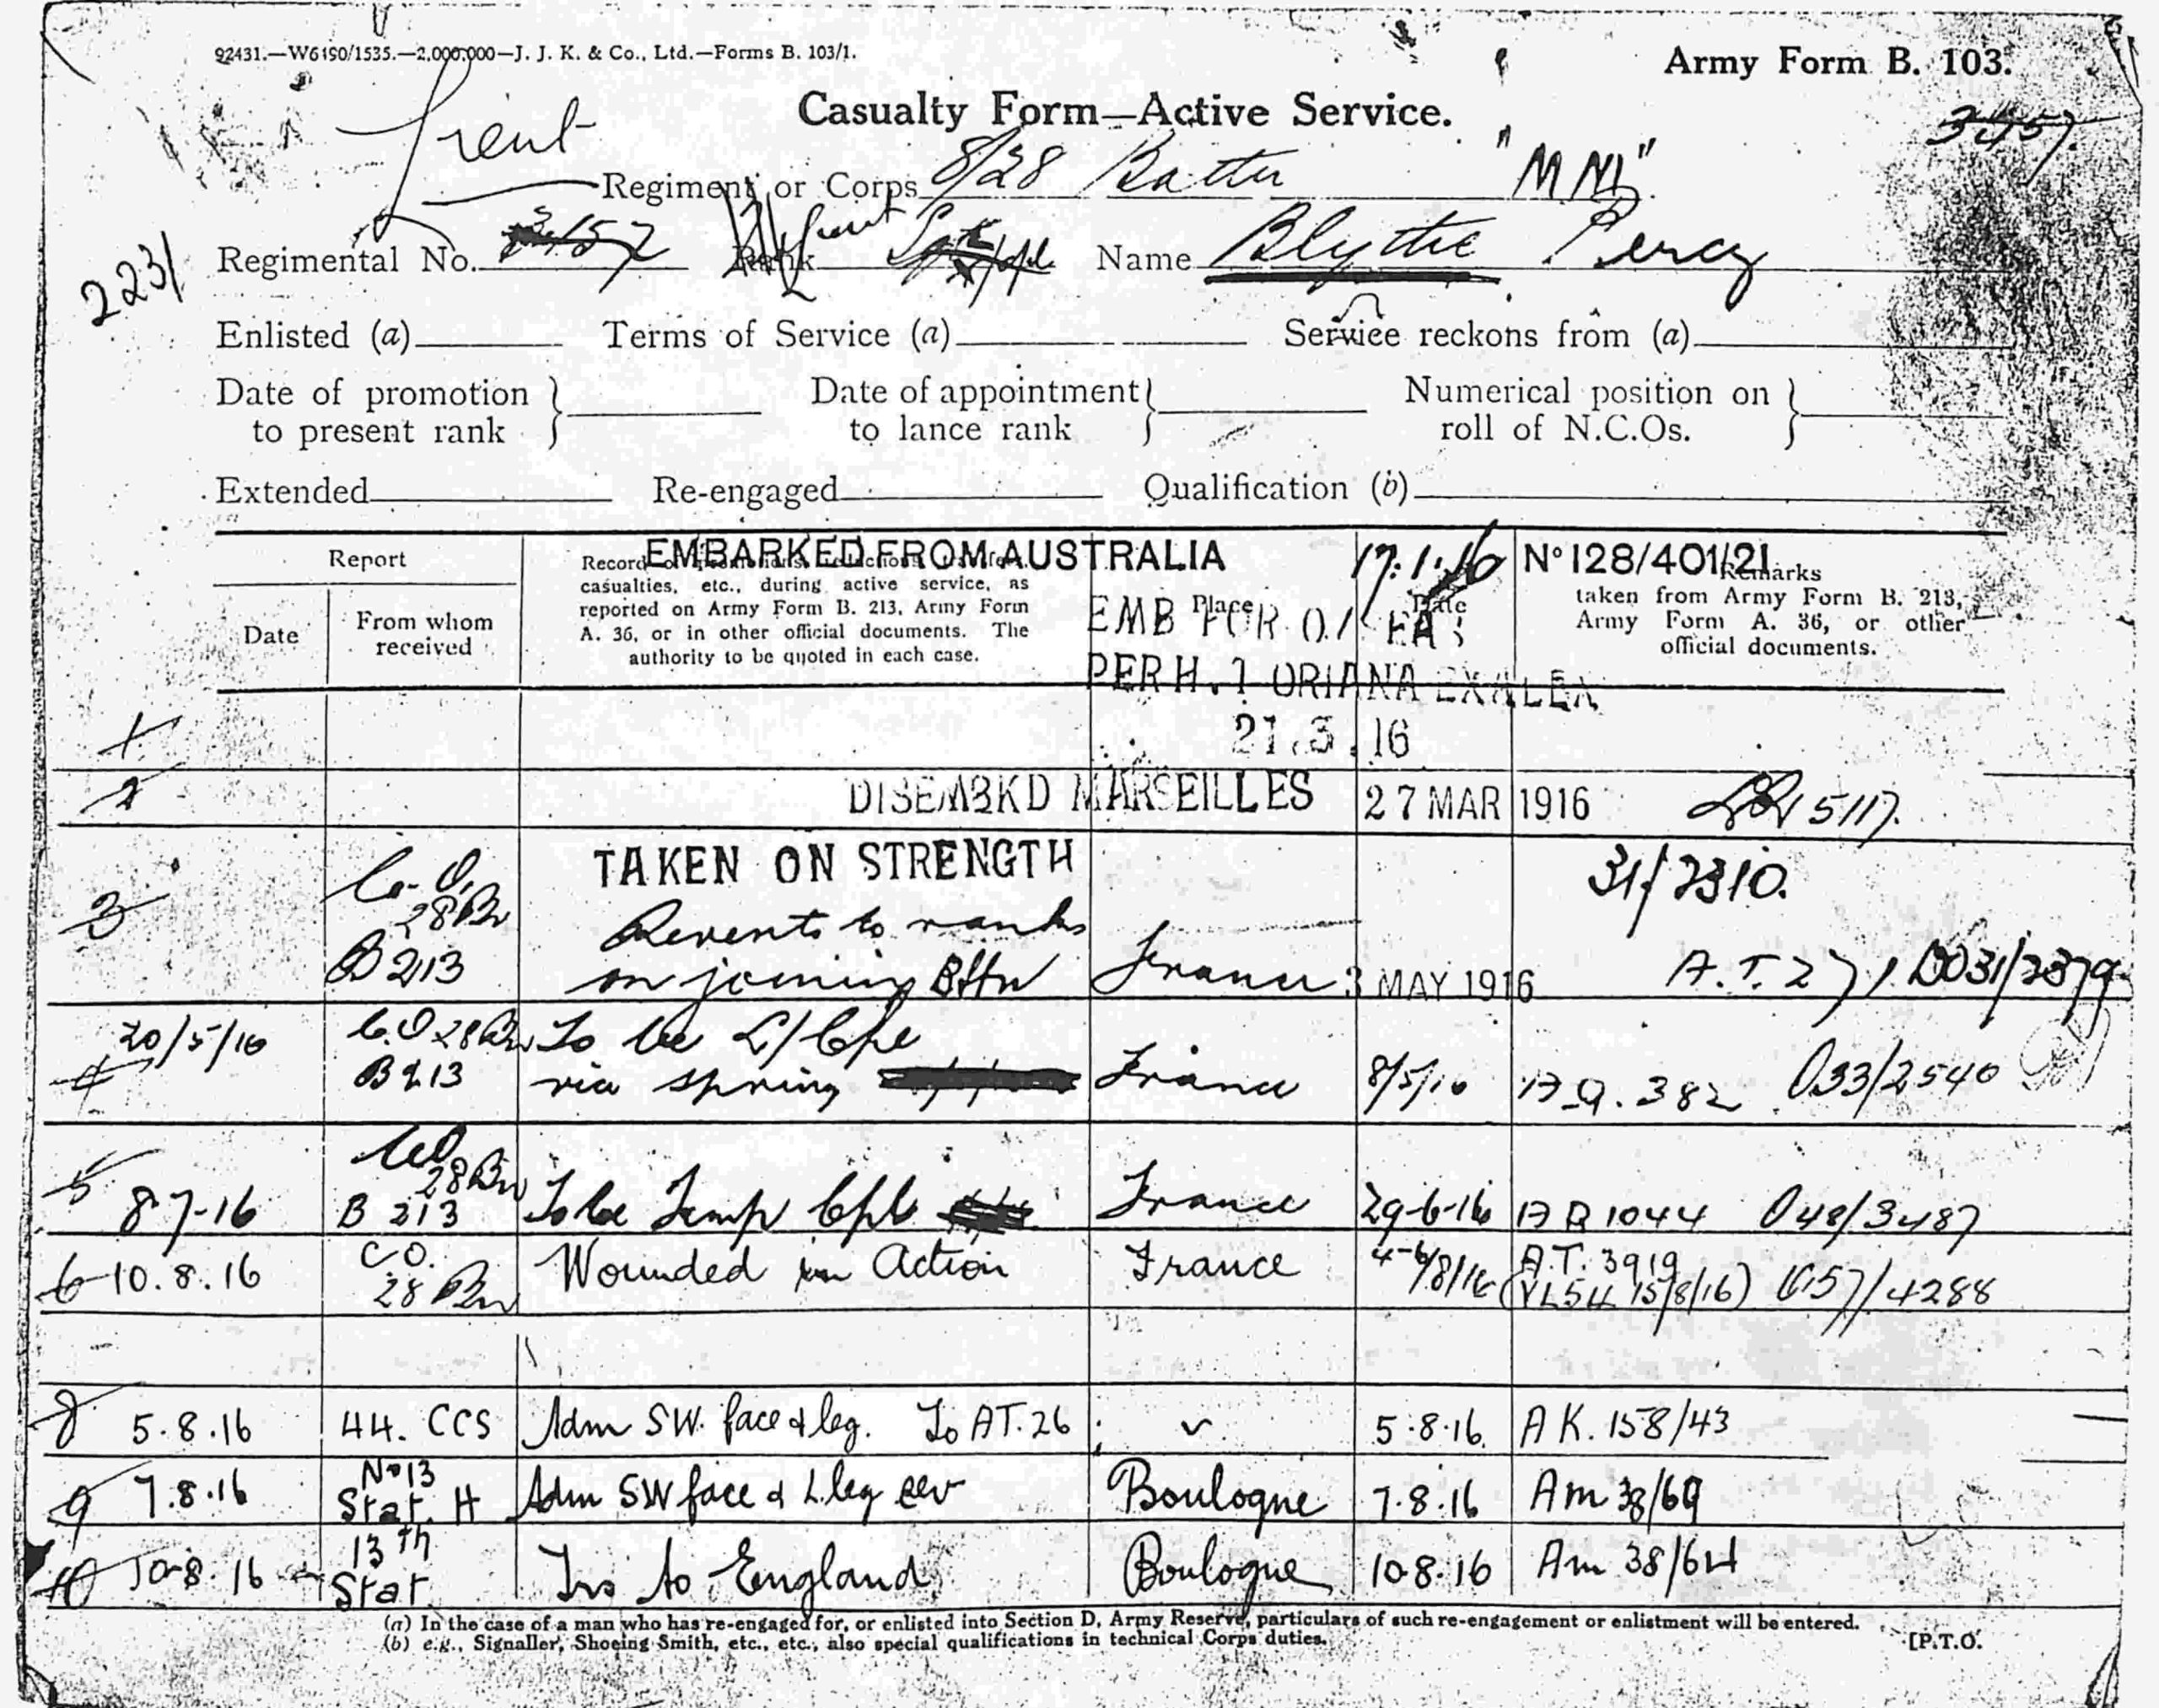 92431.—W6190/1535.—2,000,000—J. J. K. & Co., Ltd.—Forms B. 103/1.
Army Form B. 103.
Casualty Form—Active Service.
3457.
Lieut
Regiment or Corps 8/28 Battn
Regimental No. Rank Lieut Name Blythe Percy
2231
Enlisted (a) Terms of Service (a) Service reckons from (a)
Date of promotion to present rank } Date of appointment to lance rank } Numerical position on roll of N.C.Os. }
Extended Re-engaged Qualification (b)
EMBARKED FROM AUSTRALIA 17.1.16 No 128/401/21
Report
Date
From whom received
Record of promotions, reductions, transfers,
casualties, etc., during active service, as
reported on Army Form B. 213, Army Form
A. 36, or in other official documents. The
authority to be quoted in each case.
Place
Date
Remarks
taken from Army Form B. 213,
Army Form A. 36, or other
official documents.
EMB FOR
PER H. T ORIANA EX ALEX
1
21.3.16
2 DISEMBKD MARSEILLES 27 MAR 1916 5117.
TAKEN ON STRENGTH 31/2310.
3 C.O. 28 Bn
B 213
Reverts to ranks
on joining Bttn France 3 MAY 1916 A.T. 271 DO31/2379
4 20/5/16 C.O 28 Bn To be L/Cpl
B213 via spring France 8/5/16 382 O33/2540
5 CO 28 Bn
8-7-16 B 213 To be Temp Cpl France 29-6-16 1044 O48/3487
6 10.8.16 CO. 28 Bn Wounded in Action France 4-6/8/16 A.T. 3919
(VL54 15/8/16) 057/4288
8 5.8.16 44. CCS Adm SW. face & leg. To AT. 26 5.8.16. AK. 158/43
9 7.8.16 No 13 Stat. H Adm SW face & L. leg sev Boulogne 7.8.16 Am 38/69
10 10-8.16 13th Stat. Trs to England Boulogne 10.8.16 Am 38/64
(a) In the case of a man who has re-engaged for, or enlisted into Section D, Army Reserve, particulars of such re-engagement or enlistment will be entered.
(b) e.g., Signaller, Shoeing Smith, etc., etc., also special qualifications in technical Corps duties.
[P.T.O.